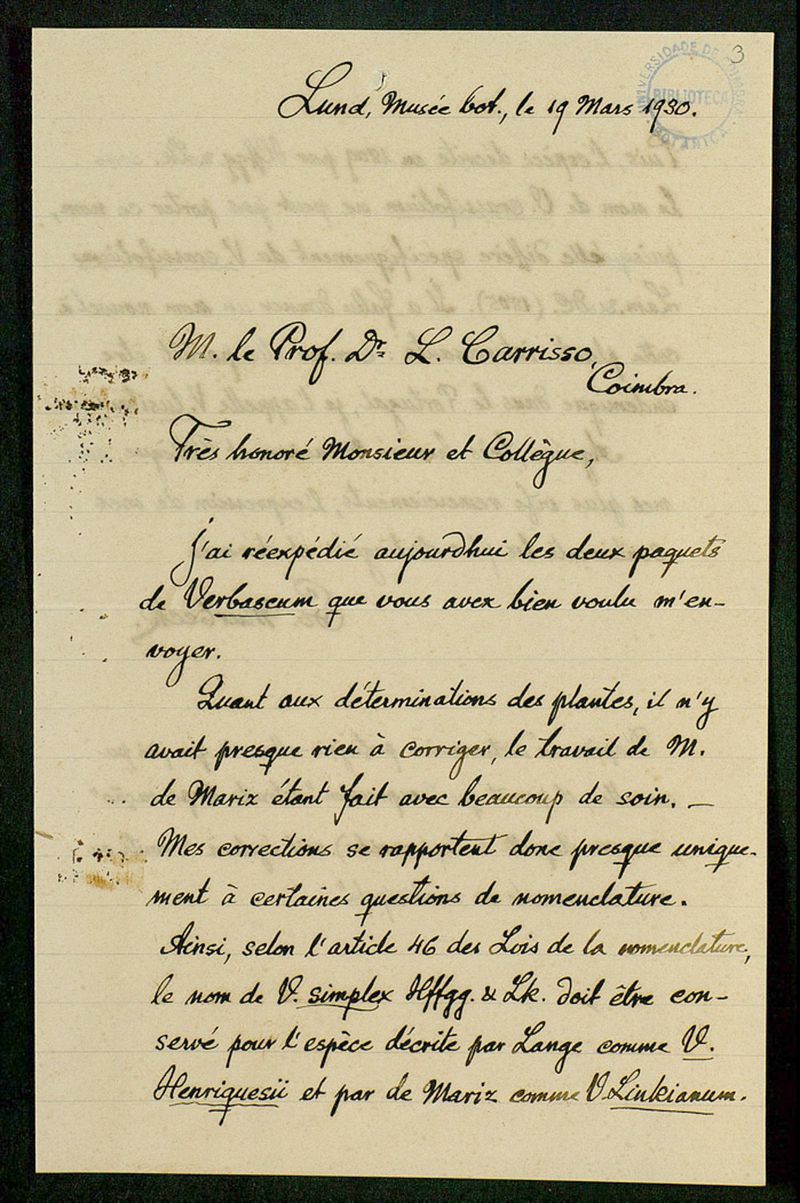 3
UNIVERSIDADE DE COIMBRA
BIBLIOTECA
BOTANICA
Lund, Musée bot., le 19 Mars 1930.
M. le Prof. Dr. L. Carrisso,
Coimbra.
Très honoré Monsieur et Collègue,
J'ai réexpédié aujourdhui les deux paquets
de Verbascum que vous avez bien voulu m'en-
voyer.
Quant aux déterminations des plantes, il n'y
avait presque rien à corriger, le travail de M.
de Mariz étant fait avec beaucoup de soin. —
Mes corrections se rapportent donc presque unique-
ment à certaines questions de nomenclature.
Ainsi, selon l'article 46 des Lois de la nomenclature,
le nom de V. simplex Hffgg. & Lk. doit être con-
servé pour l'espèce décrite par Lange comme V.
Henriquesii et par de Mariz comme V. Linkianum.